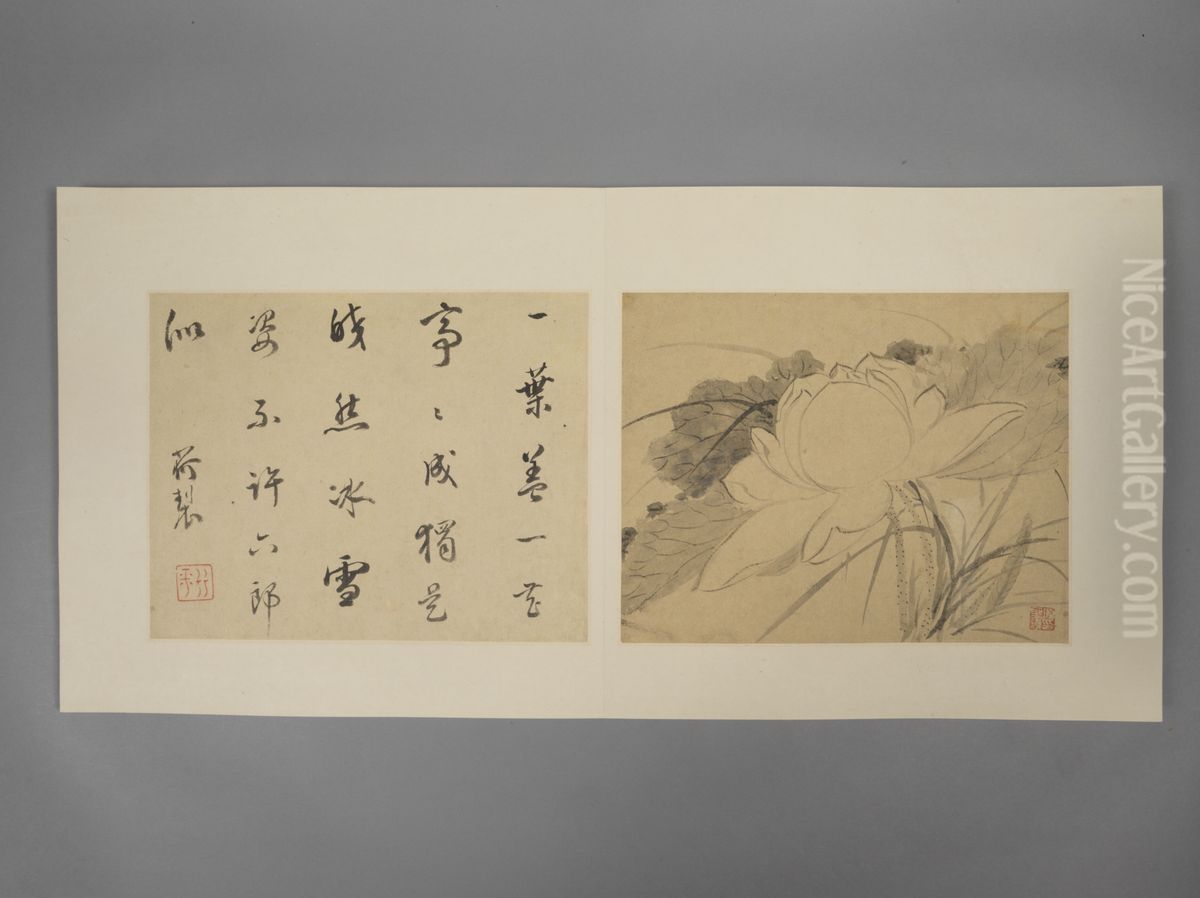 一葉葢一花
亭〻成獨
皎然冰雪
姿不許六郎
似
荷製
NiceArtGallery.com